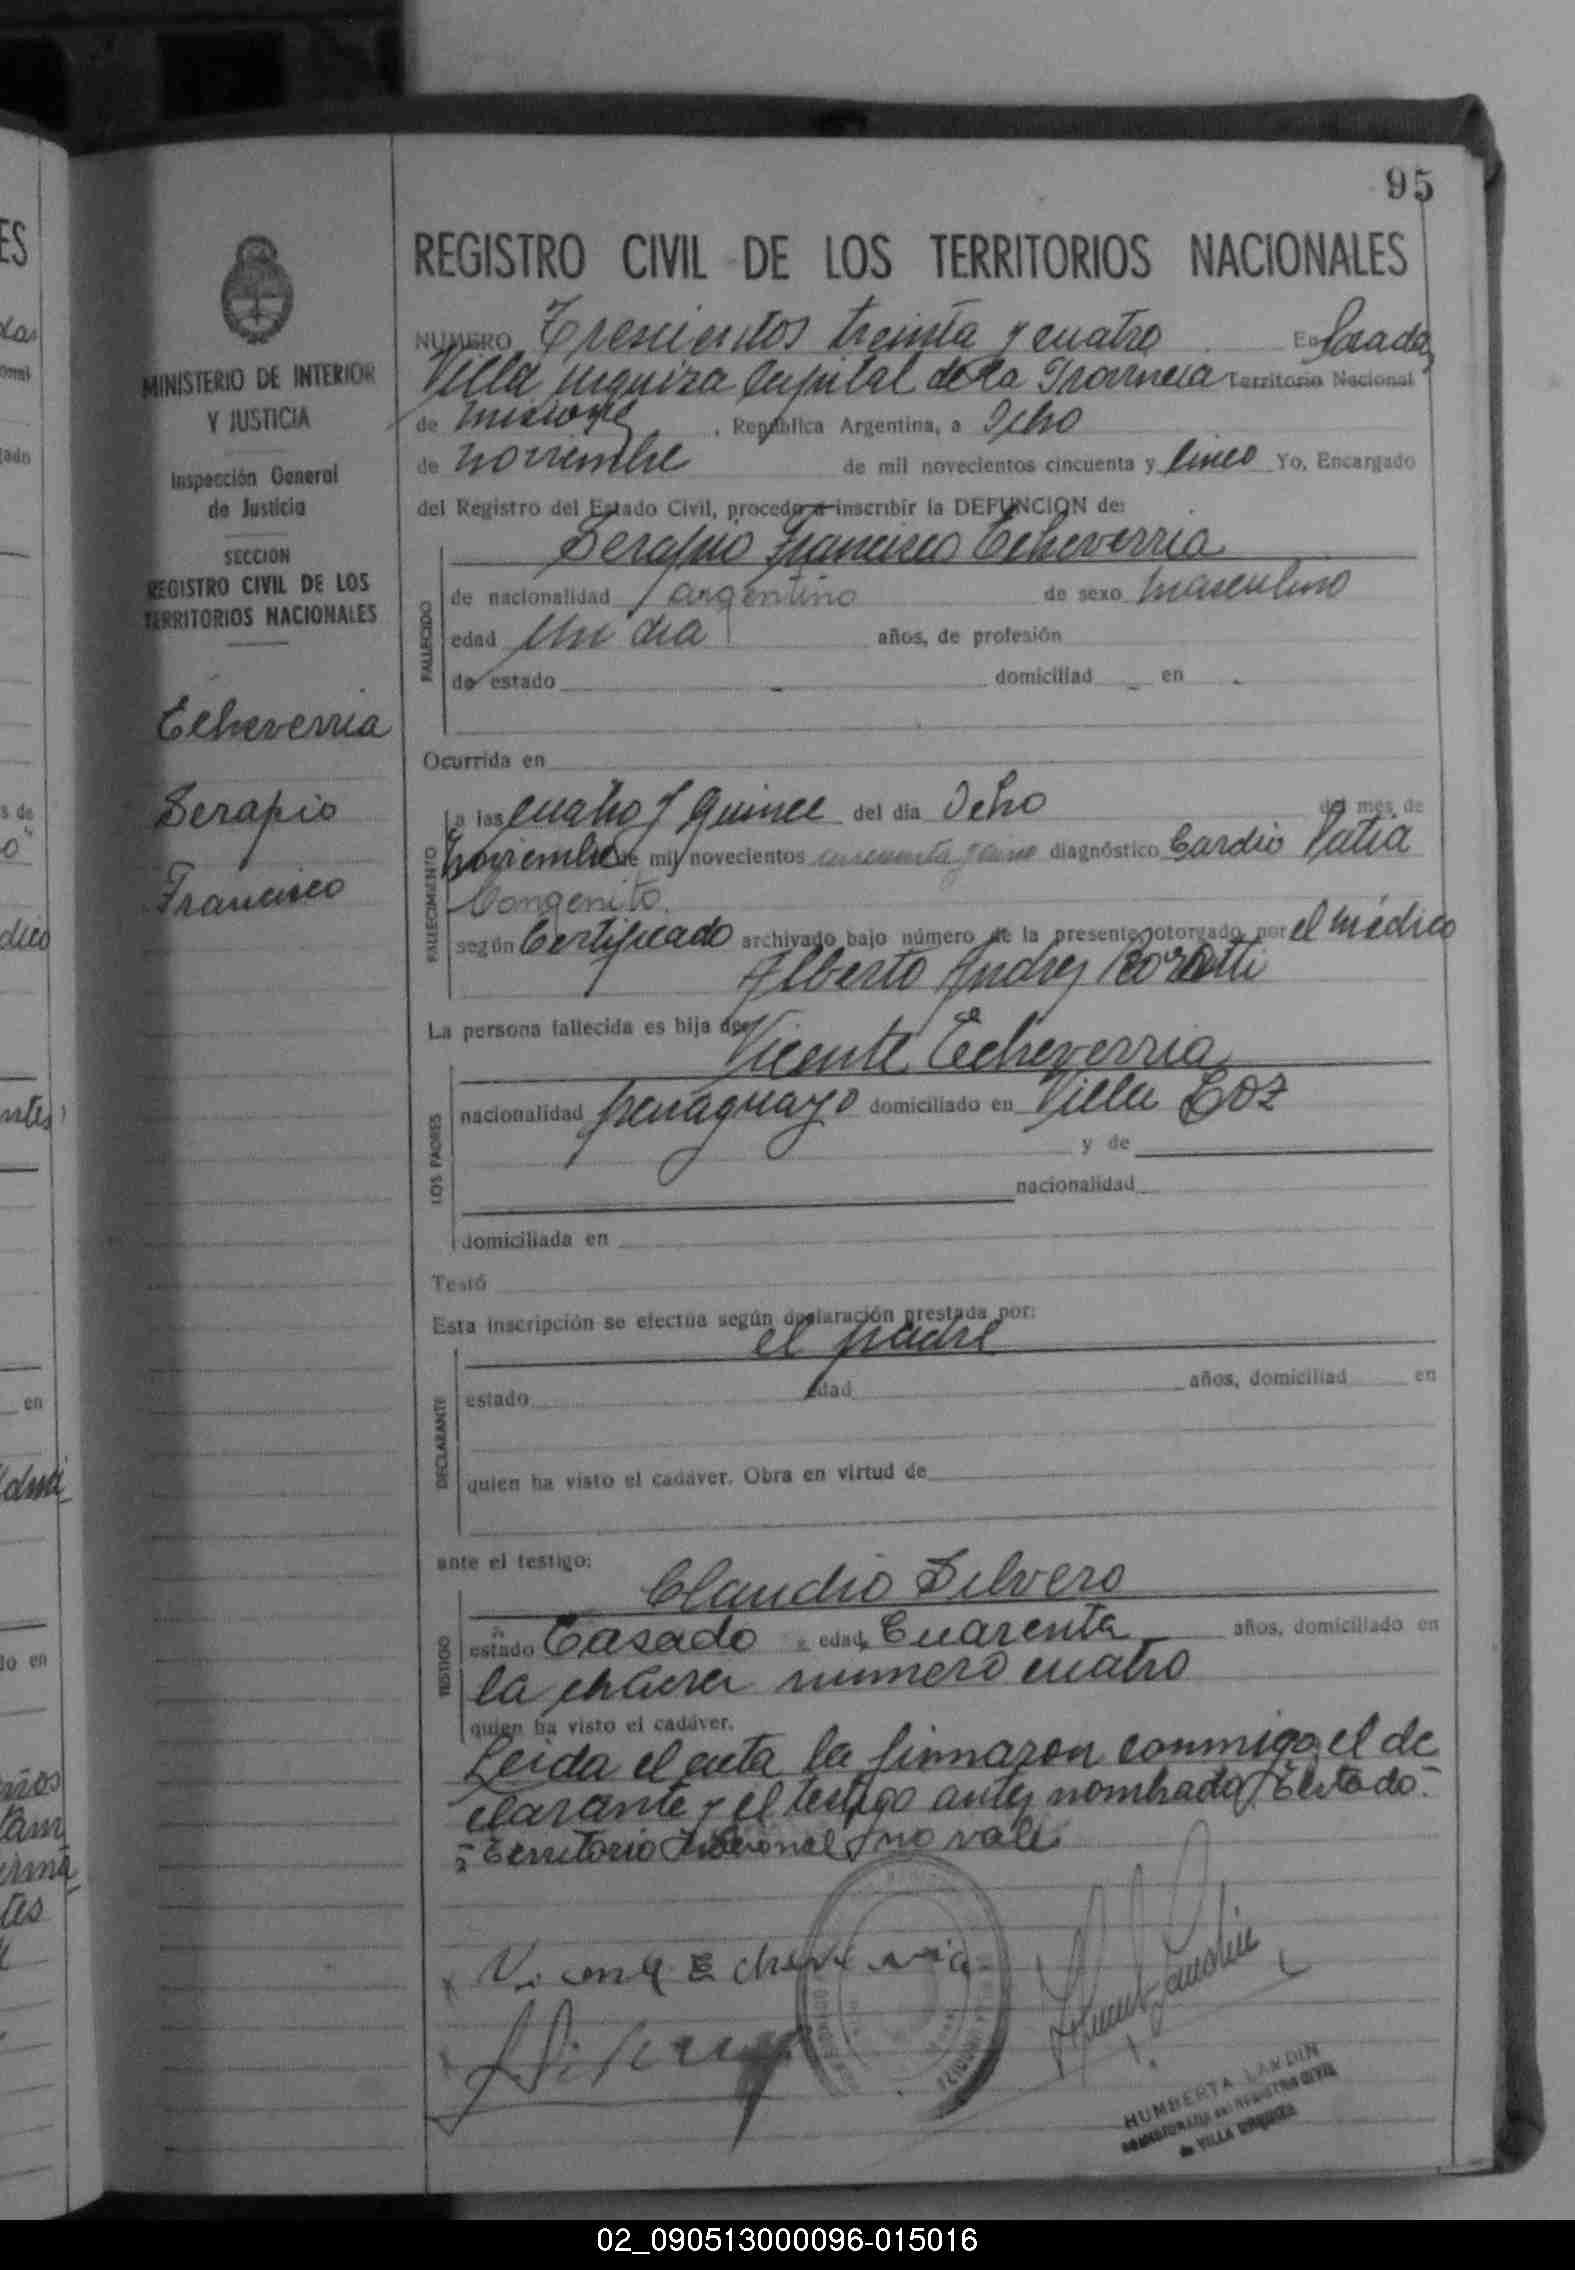 95
REGISTRO CIVIL DE LOS TERRITORIOS NACIONALES
MINISTERIO DE INTERIOR
Y JUSTICIA
Inspección General
de Justicia
SECCION
REGISTRO CIVIL DE LOS
TERRITORIOS NACIONALES
Echeverria
Serapio
Francisco
NUMERO Trescientos treinta y cuatro En Posadas
Villa urquiza Capital de la Provincia Territorio Nacional
de Misiones, República Argentina, a Ocho
de noviembre de mil novecientos cincuenta y Cinco Yo, Encargado
del Registro del Estado Civil, procedo a inscribir la DEFUNCION de:
Serapio Francisco Echeverria
FALLECIDO
de nacionalidad argentino de sexo masculino
edad Un dia años, de profesión
de estado - domiciliad - en -
Ocurrida en
FALLECIMIENTO
a las cuatro y Quince del dia Ocho del mes de
Noviembre de mil novecientos cincuenta y cinco diagnóstico Cardio Patia
Congenito.
según Certificado archivado bajo número de la presente, otorgado por el médico
Alberto Andres
La persona fallecida es hija de:
Vicente Echeverria
LOS PADRES
nacionalidad paraguayo domiciliado en Villa Coz
y de
nacionalidad
domiciliada en
Testó
Esta inscripción se efectúa según declaración prestada por:
el padre
DECLARANTE
estado edad años, domiciliad en
quien ha visto el cadáver. Obra en virtud de
ante el testigo:
Claudio Silvero
TESTIGO
estado Casado edad Cuarenta años, domiciliado en
la chacra numero cuatro
quien ha visto el cadáver.
Leida el acta la firmaron conmigo, el de
clarante y el testigo antes nombrado/ Testado-
-Territorio Nacional/ no vale
Vicente Echeverria
HUMBERTA LANDIN
ENCARGADA DEL REGISTRO CIVIL
de VILLA URQUIZA
02_090513000096-015016